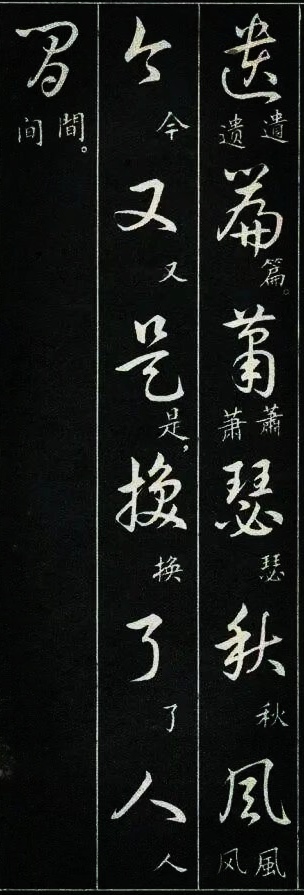 遗篇萧瑟秋风
遗 遺 篇。 萧 蕭 瑟 秋 风 風
今又是换了人
今 又 是， 换 了 人
间
间 間。